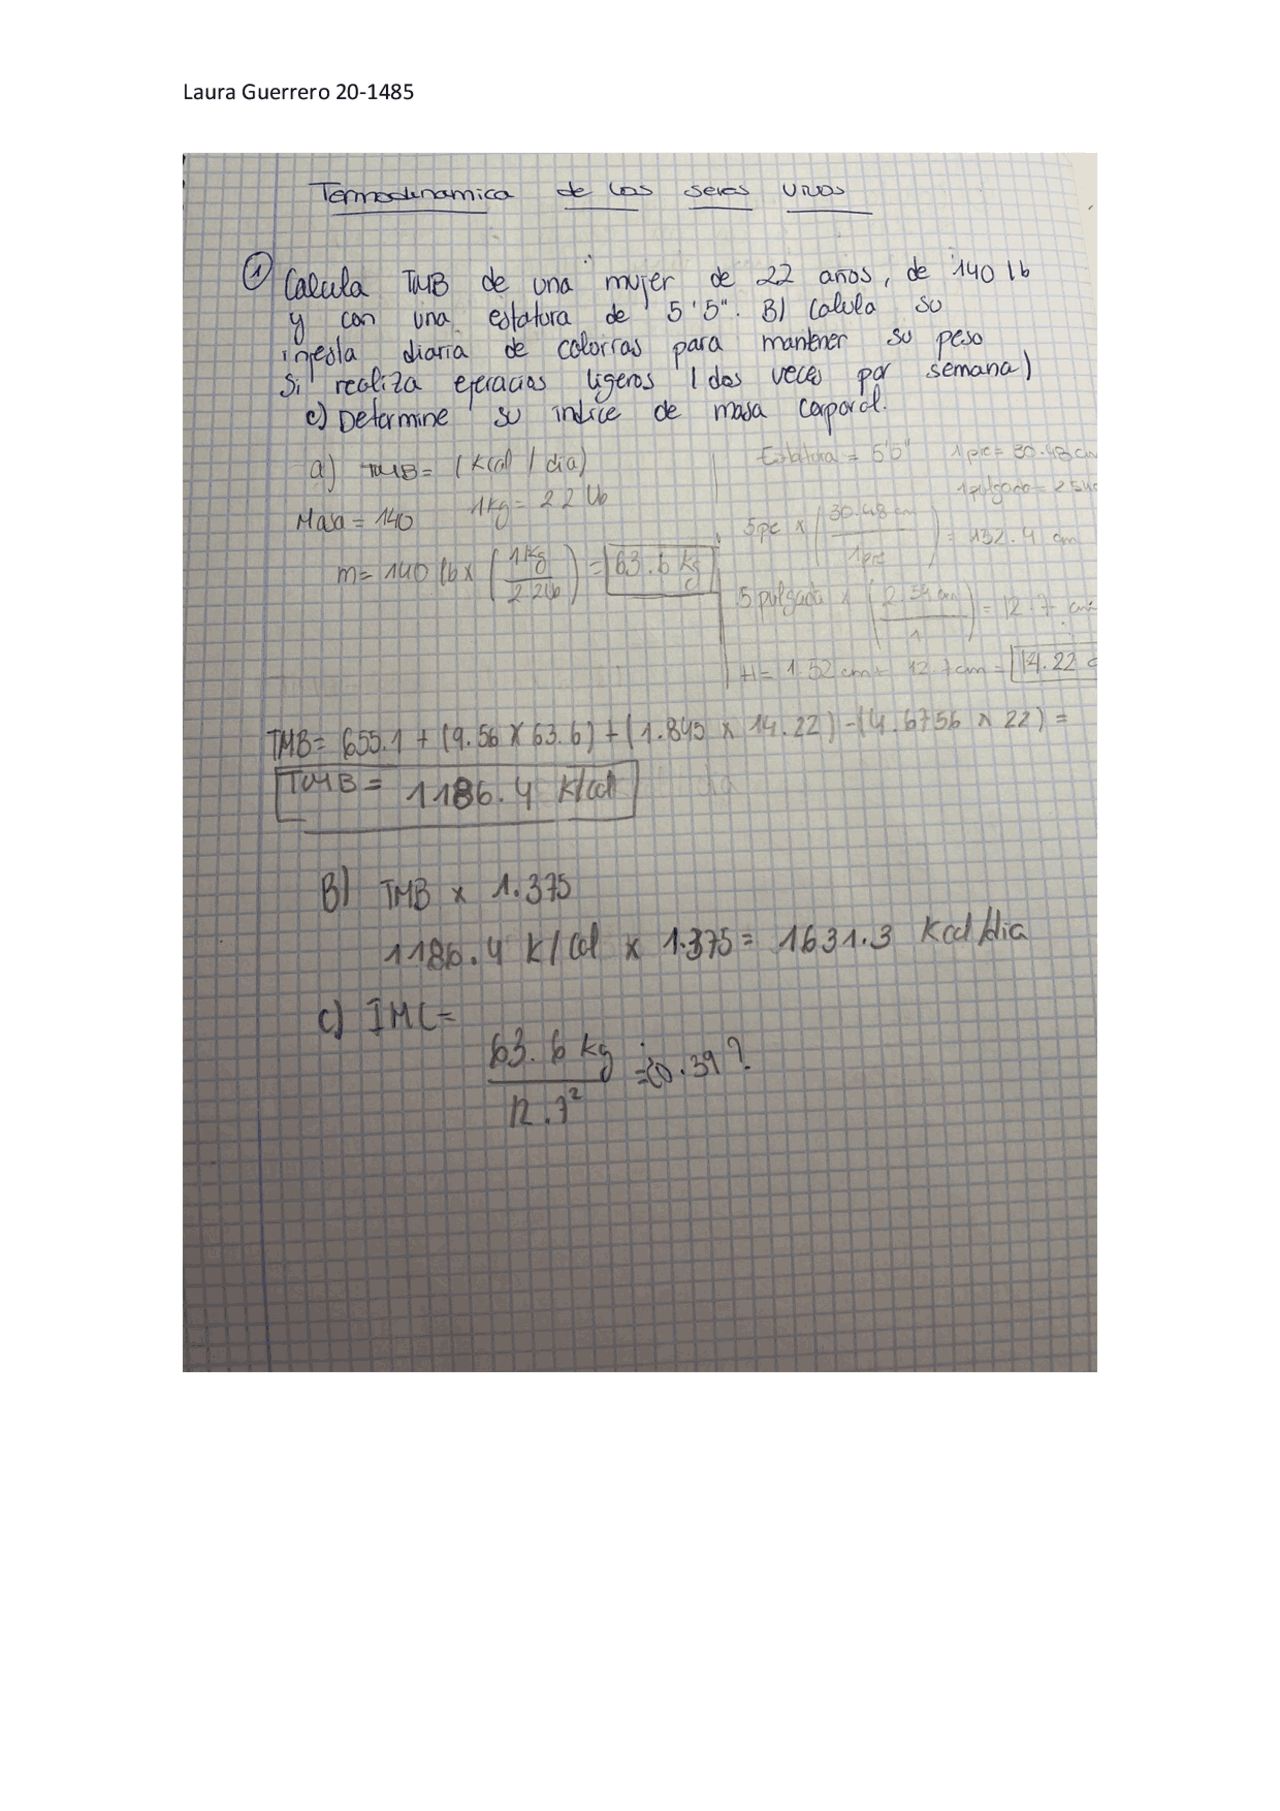 Laura Guerrero 20-1485
Termodinamica de los seres vivos
① Calcula TMB de una mujer de 22 años, de 140 lb
y con una estatura de 5'5". B) Calula su
ingesta diaria de colorras para mantener su peso
si realiza ejercicios ligeros (dos veces por semana)
c) Determine su indice de masa corporal.
a) TMB = (Kcal / dia)
Masa = 140
1kg = 2.2 lb
m = 140 lb x (1Kg / 2.2lb) = 63.6 kg
Estatura = 5'5" 1 pie = 30.48 cm
1 pulgada = 2.54c
5 pie x (30.48 cm / 1 pie) = 152.4 cm
5 pulgada x (2.54 cm / 1) = 12.7 cm
H = 1.52 cm + 12.7cm = 14.22 c
TMB = 655.1 + (9.56 x 63.6) + (1.845 x 14.22) - (4.6756 x 22) =
TMB = 1186.4 K/cal
B) TMB x 1.375
1186.4 K/cal x 1.375 = 1631.3 Kcal/dia
c) IMC =
63.6 kg / 12.7² = 0.39?